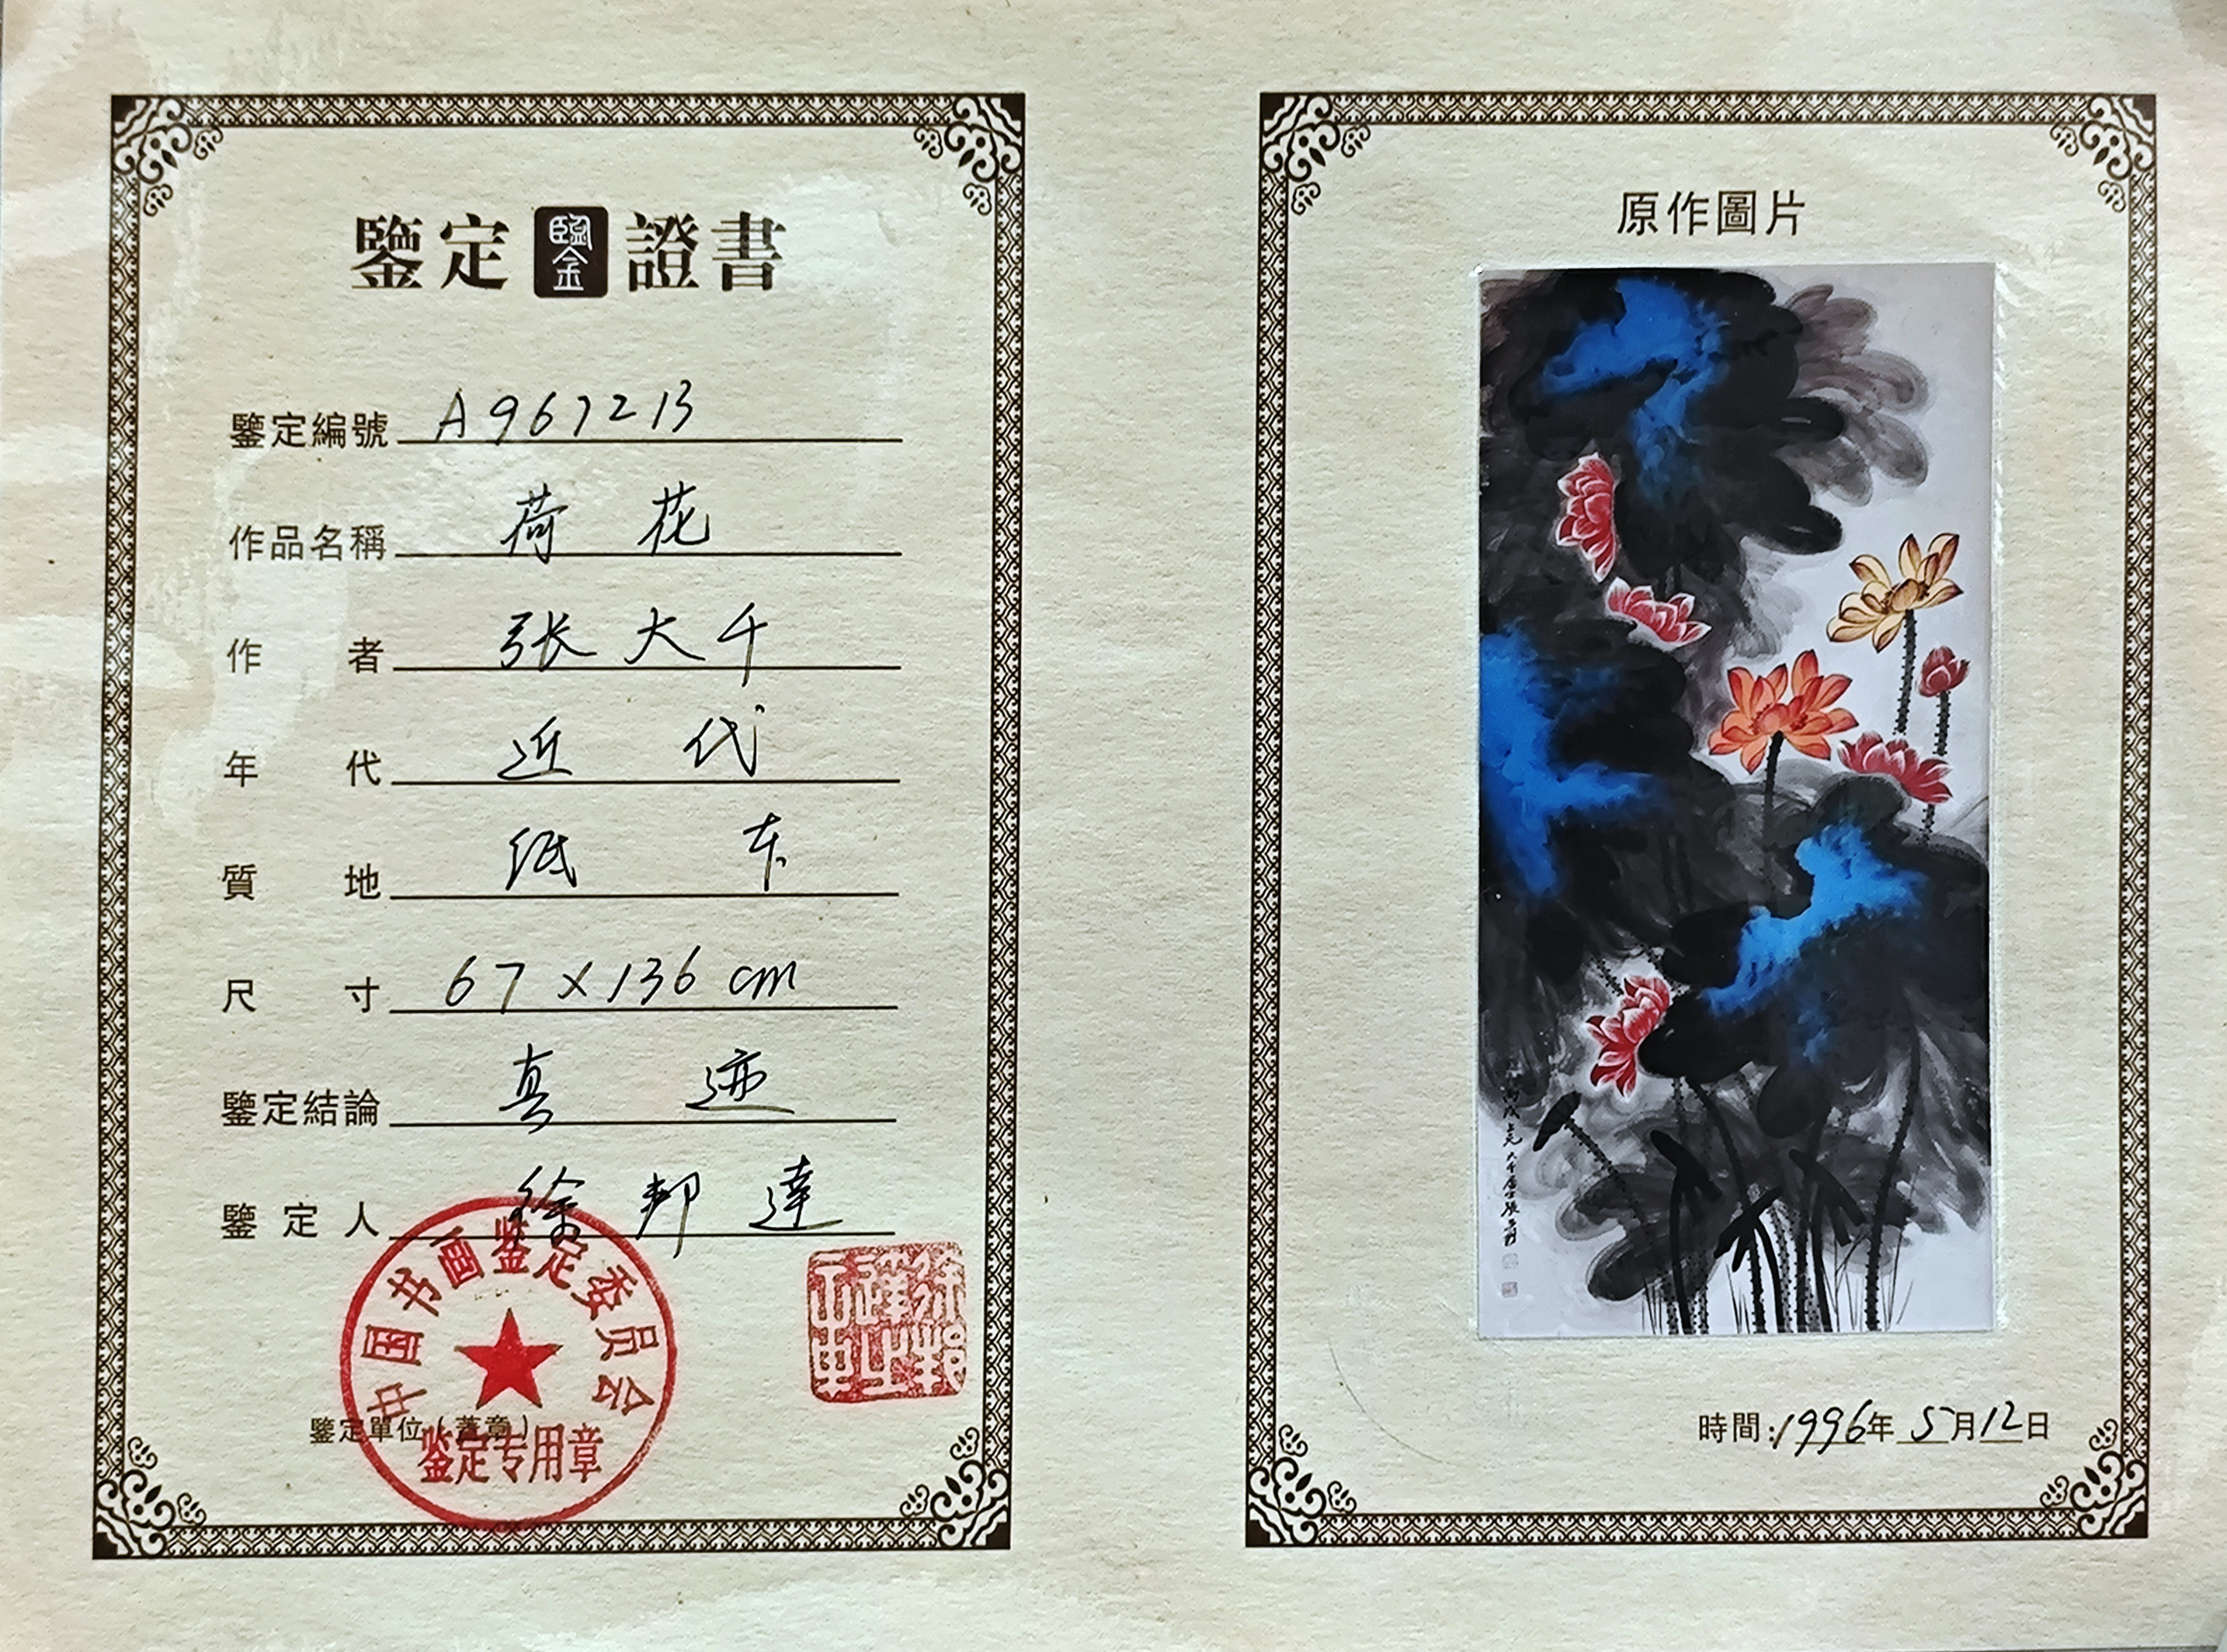 鑒定 鑒 證書
鑒定編號 A967213
作品名稱 荷花
作者 张大千
年代 近代
質地 纸本
尺寸 67×136cm
鑒定結論 真迹
鑒定人 徐邦達
中国书画鉴定委员会
鑒定單位(蓋章)
鉴定专用章
原作圖片
丙戌 大千居士張爰
時間:1996年5月12日